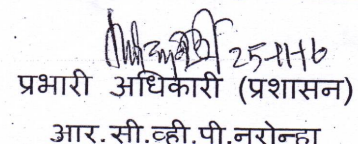 25-11-16
प्रभारी अधिकारी (प्रशासन)
आर.सी.व्ही.पी.नरोन्हा